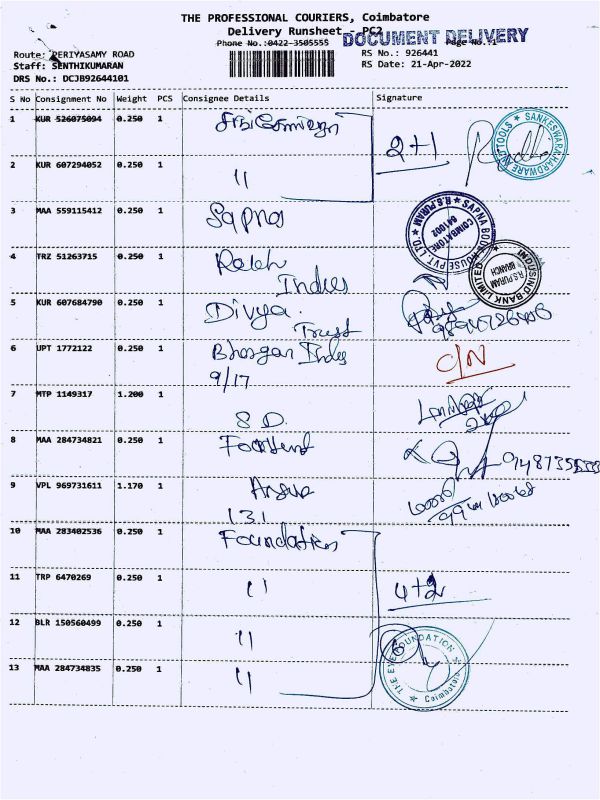 THE PROFESSIONAL COURIERS, Coimbatore
Delivery Runsheet - PC2
Phone No.:0422-3505555 Page No.:1
DOCUMENT DELIVERY
Route: PERIYASAMY ROAD RS No.: 926441
Staff: SENTHIKUMARAN RS Date: 21-Apr-2022
DRS No.: DCJB92644101
S No Consignment No Weight PCS Consignee Details Signature
1 KUR 526075094 0.250 1
2+1
SANKESWARA HARDWARE AND TOOLS
2 KUR 607294052 0.250 1 "
3 MAA 559115412 0.250 1 Sapna
SAPNA BOOK HOUSE PVT. LTD. R.S.PURAM COIMBATORE 641002
4 TRZ 51263715 0.250 1
INDUSIND BANK LIMITED R.S.PURAM BRANCH
5 KUR 607684790 0.250 1 Divya
Trust
6 UPT 1772122 0.250 1
9/17
7 MTP 1149317 1.200 1
S D.
8 MAA 284734821 0.250 1
9 VPL 969731611 1.170 1
131
10 MAA 283402536 0.250 1 Foundation
11 TRP 6470269 0.250 1 "
4+2
12 BLR 150560499 0.250 1 "
THE EYE FOUNDATION Coimbatore
13 MAA 284734835 0.250 1 "